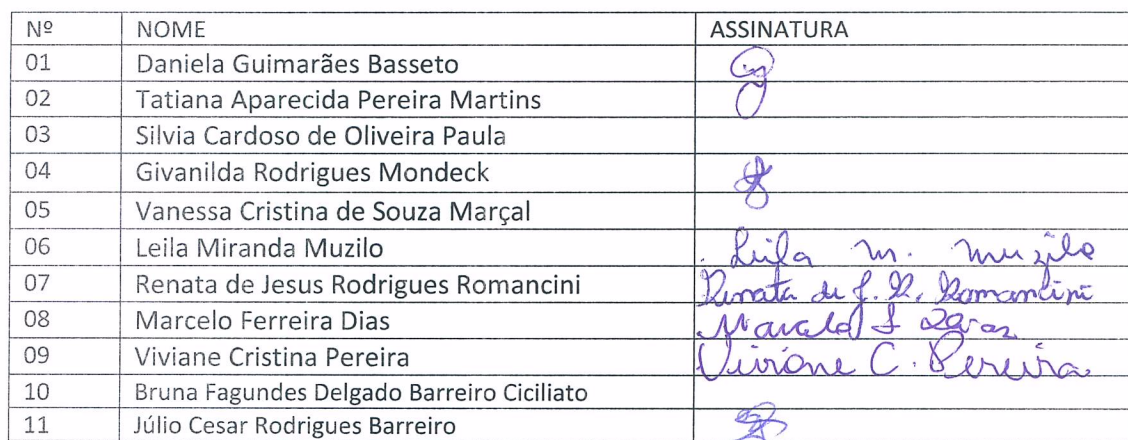 Nº NOME ASSINATURA
01 Daniela Guimarães Basseto
02 Tatiana Aparecida Pereira Martins
03 Silvia Cardoso de Oliveira Paula
04 Givanilda Rodrigues Mondeck
05 Vanessa Cristina de Souza Marçal
06 Leila Miranda Muzilo Leila M. Muzilo
07 Renata de Jesus Rodrigues Romancini Renata de J. R. Romancini
08 Marcelo Ferreira Dias Marcelo F Dias
09 Viviane Cristina Pereira Viviane C. Pereira
10 Bruna Fagundes Delgado Barreiro Ciciliato
11 Júlio Cesar Rodrigues Barreiro